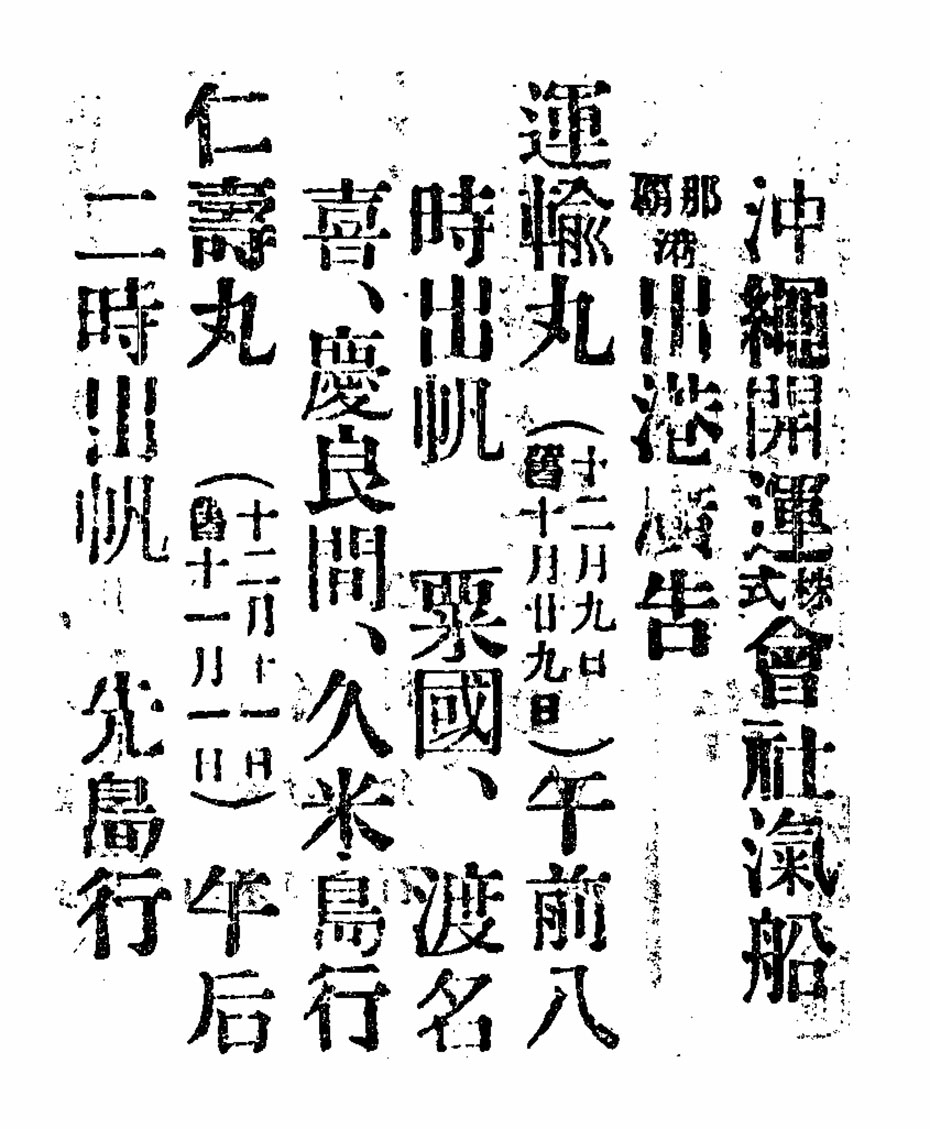 沖繩開運株式會社滊船
那覇港出港廣告
運輸丸(十二月九日舊十月廿九日)午前八
時出帆 粟國、渡名
喜、慶良間、久米島行
仁壽丸(十二月十一日舊十一月一日)午后
二時出帆 先島行